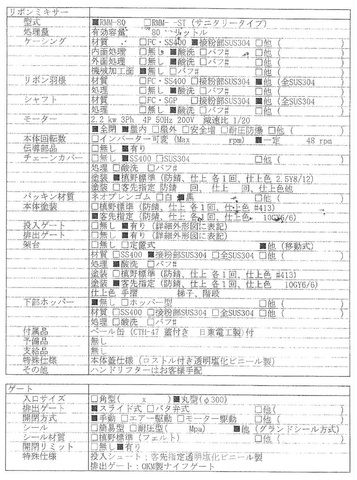 リボンミキサー
型式 ■RMM-80 □RMM- -SI (サニタリータイプ)
処理量 有効容量 80 リットル
ケーシング 材質 □FC・SS400 ■接粉部SUS304 □他( )
内面処理 □無し ■酸洗 □バフ# □他( )
外面処理 □無し ■酸洗 □バフ# □他( )
機械加工面 ■無し □バフ# □他( )
リボン羽根 材質 □FC・SS400 □接粉部SUS304 ■他(全SUS304 )
処理 □無し ■酸洗 □バフ# □他( )
シャフト 材質 □FC・SGP □接粉部SUS304 ■他(全SUS304 )
処理 □無し ■酸洗 □バフ# □他( )
モーター 2.2 kw 3Ph 4P 50Hz 200V 減速比 1/20
■全閉 ■屋内 □屋外 □安全増 □耐圧防爆 □他( )
本体回転数 □インバーター可変 (Max rpm) ■一定 48 rpm
伝導部品 □無し ■有り
チェーンカバー □無し ■SS400 □SUS304 □他( )
処理 □酸洗 □バフ#
塗装 ■槙野標準 (防錆、仕上 各1回、仕上色 2.5Y8/12)
□客先指定 防錆 回、仕上 回、仕上色他
パッキン材質 ネオプレンゴム □白 ■黒 □他( )
本体塗装 □槙野標準 (防錆、仕上 各1回、仕上色 #413)
■客先指定 (防錆、仕上 各1回、仕上色 10GY6/6)
投入ゲート □無し ■有り (詳細外形図に表記)
排出ゲート □無し ■有り (詳細外形図に表記)
架台 □無し □定置式 ■他 (移動式)
材質 ■SS400 □接粉部SUS304 □全SUS304 □他( )
処理 ■酸洗 □バフ#
塗装 □槙野標準 (防錆、仕上 各1回、仕上色 #413)
塗装 ■客先指定 (防錆、仕上 各1回、仕上色 10GY6/6)
仕上色 手摺 梯子、階段
下部ホッパー ■無し □ホッパー型 □他( )
材質 □SS400 □接粉部SUS304 □全SUS304 □他( )
処理 □酸洗 □バフ#
付属品 ベール缶 (CTH-47 蓋付き 日東電工製)付
予備品 無し
支給品 無し
特殊仕様 本体蓋仕様 (ロストル付き透明塩化ビニール製)
その他 ハンドリフターはお客様手配
ゲート
入口サイズ □角型( x ) ■丸型(φ300)
排出ゲート ■スライド式 □バタ弁式 □他( )
開閉方式 ■手動 □エアー駆動 □モーター駆動 □他( )
シール □簡易型 □耐圧型( Mpa) ■他(グランドシール方式)
シール材質 □槙野標準 (フェルト) □他( )
開閉リミット □無し ■有り
特殊仕様 投入シュート:客先指定透明塩化ビニール製
排出ゲート:OKM製ナイフゲート